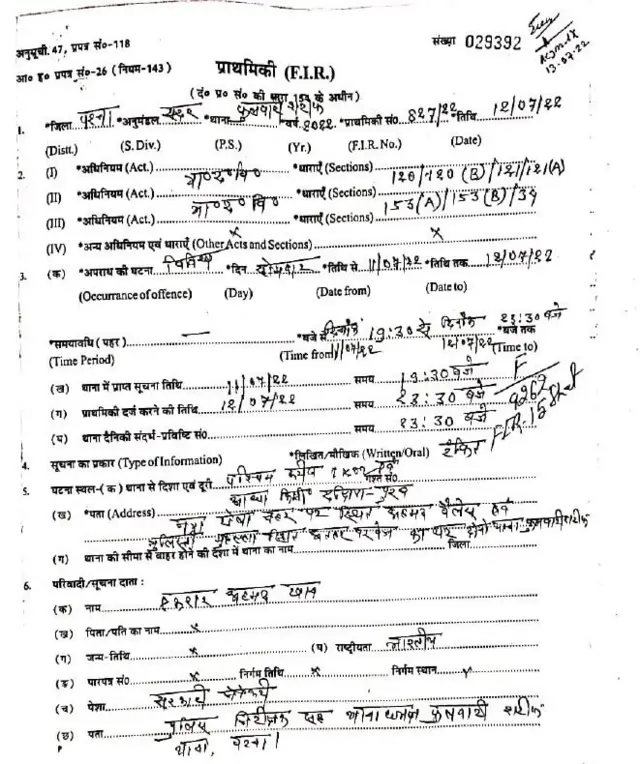 अनुसूची. 47, प्रपत्र सं०-118
संख्या 029392
13-07-22
आ० ह० प्रपत्र सं०-26 (नियम-143)
प्राथमिकी (F.I.R.)
(दं० प्र० सं० की धारा 154 के अधीन)
1. *जिला पटना *अनुमंडल सदर *थाना फुलवारी शरीफ *वर्ष 2022 *प्राथमिकी सं० 827/22 *तिथि 12/07/22
(Distt.) (S. Div.) (P.S.) (Yr.) (F.I.R. No.) (Date)
2. (I) *अधिनियम (Act.) भा० द० वि० *धाराएँ (Sections) 120/120(B)/121/121(A)
(II) *अधिनियम (Act.) भा० द० वि० *धाराएँ (Sections) 153(A)/153(B)/34
(III) *अधिनियम (Act.) x *धाराएँ (Sections) x
(IV) *अन्य अधिनियम एवं धाराएँ (Other Acts and Sections)
3. (क) *अपराध की घटना *दिन सोमवार *तिथि से 11/07/22 *तिथि तक 12/07/22
(Occurrance of offence) (Day) (Date from) (Date to)
*समयावधि (पहर) — *बजे से दिनांक 19:30 से दिनांक 23:30 बजे *बजे तक
(Time Period) (Time from) 11/07/22 12/07/22 (Time to)
(ख) थाना में प्राप्त सूचना तिथि 11/07/22 समय 19:30 बजे
(ग) प्राथमिकी दर्ज करने की तिथि 12/07/22 समय 23:30 बजे
(घ) थाना दैनिकी संदर्भ-प्रविष्टि सं० समय 23:30 बजे
4. सूचना का प्रकार (Type of Information) *लिखित/मौखिक (Written/Oral) टंकित
5. घटना स्थल-(क) थाना से दिशा एवं दूरी पश्चिम करीब गश्त सं०
आधा किमी दक्षिण-पूरब
(ख) *पता (Address) नया टोला नहर पर स्थित अहमद पैलेस एवं
(ग) थाना की सीमा से बाहर होने की दशा में थाना का नाम जिला
6. परिवादी/सूचना दाता :
(क) नाम एकरार अहमद खान
(ख) पिता/पति का नाम x
(ग) जन्म-तिथि x (घ) राष्ट्रीयता भारतीय
(ङ) पारपत्र सं० x निर्गम तिथि x निर्गम स्थान
(च) पेशा सरकारी नौकरी
(छ) पता पुलिस निरीक्षक सह थानाध्यक्ष फुलवारी शरीफ
थाना, पटना।